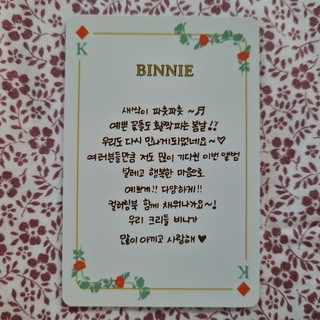 K
BINNIE
새싹이 파릇파릇 ~♬
예쁜 꽃들도 활짝 피는 봄날!!
우리도 다시 만나게되었네요~♡
여러분들만큼 저도 많이 기다린 이번 앨범
설레고 행복한 마음으로
예쁘게!! 다양하게!!
컬러링북 함께 채워나가요~!
우리 크리들 비니가
많이 아끼고 사랑해 ♥
K